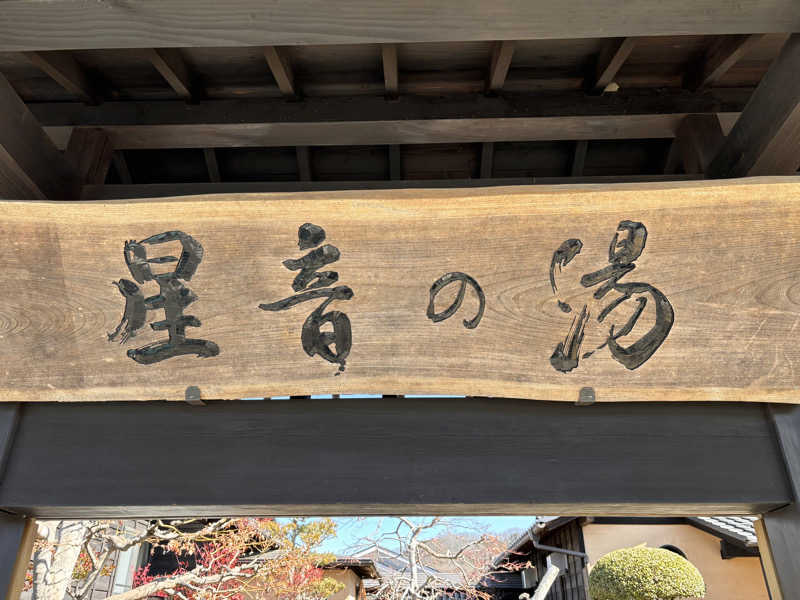 星音の湯